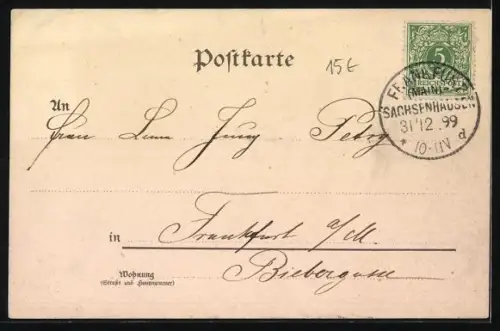 Postkarte
15€
5
FRANKFURT
(MAIN)
SACHSENHAUSEN
31 12 99
* 10-11 N d
An
Jung Petry
in Frankfurt a/M.
Biebergasse
Wohnung
(Straße und Hausnummer)